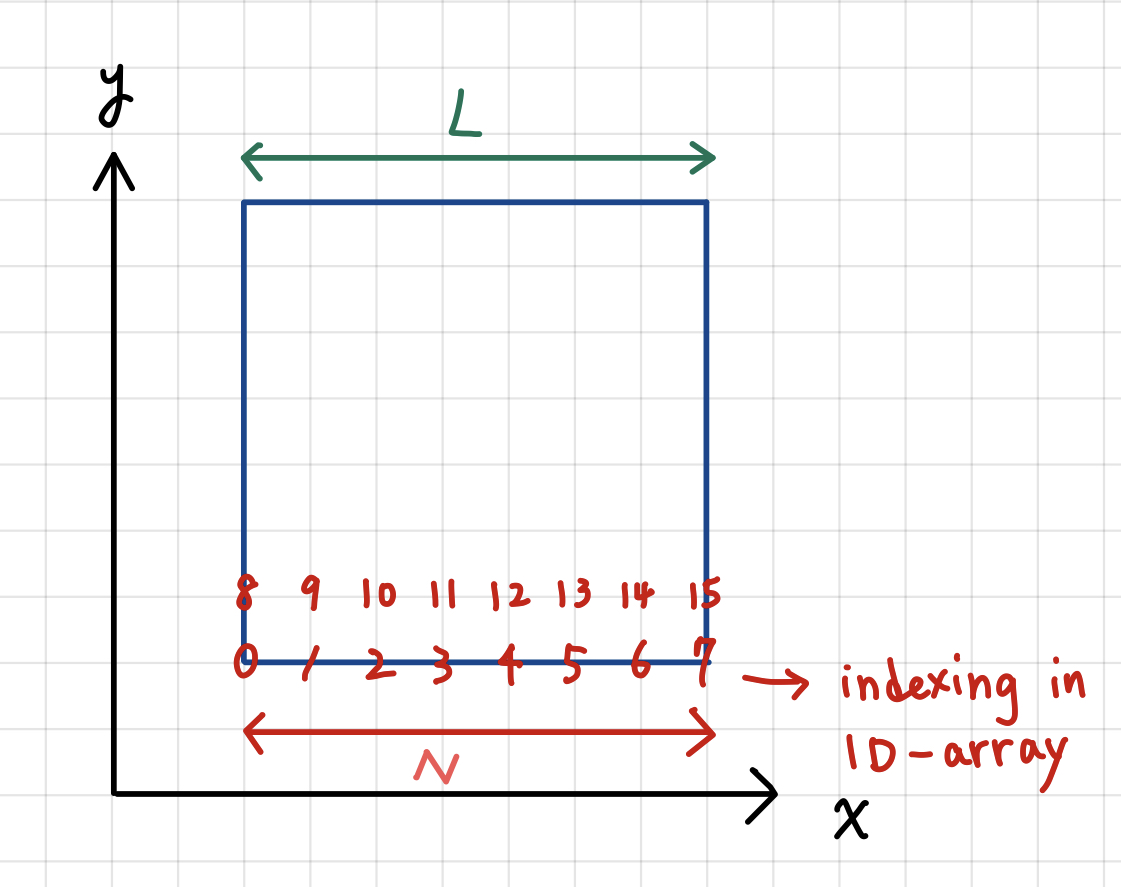 y
L
8 9 10 11 12 13 14 15
0 1 2 3 4 5 6 7
indexing in
1D-array
N
x